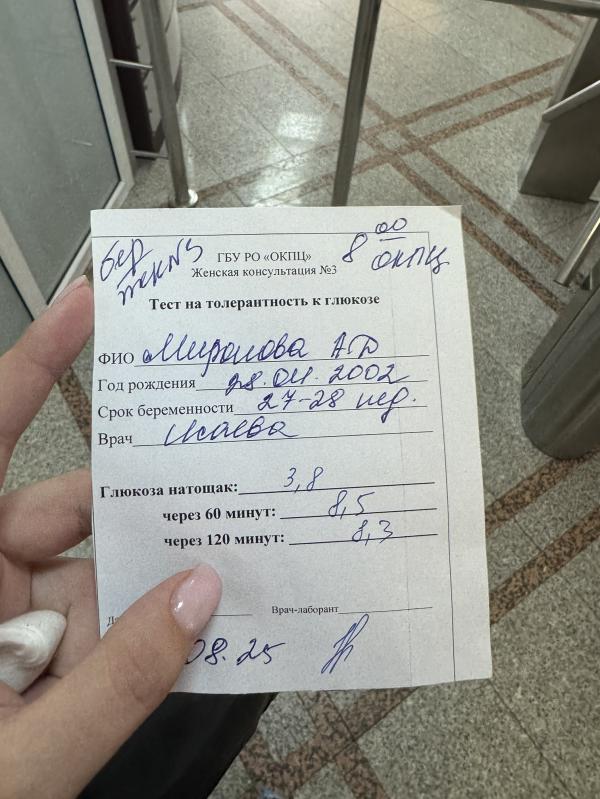 бер
ГБУ РО «ОКПЦ»
Женская консультация №3
8 00
ОКПЦ
Тест на толерантность к глюкозе
ФИО Миронова А Д
Год рождения 28.04.2002
Срок беременности 27-28 нед.
Врач Исаева
Глюкоза натощак: 3,8
через 60 минут: 8,5
через 120 минут: 8,3
Врач-лаборант
08.25